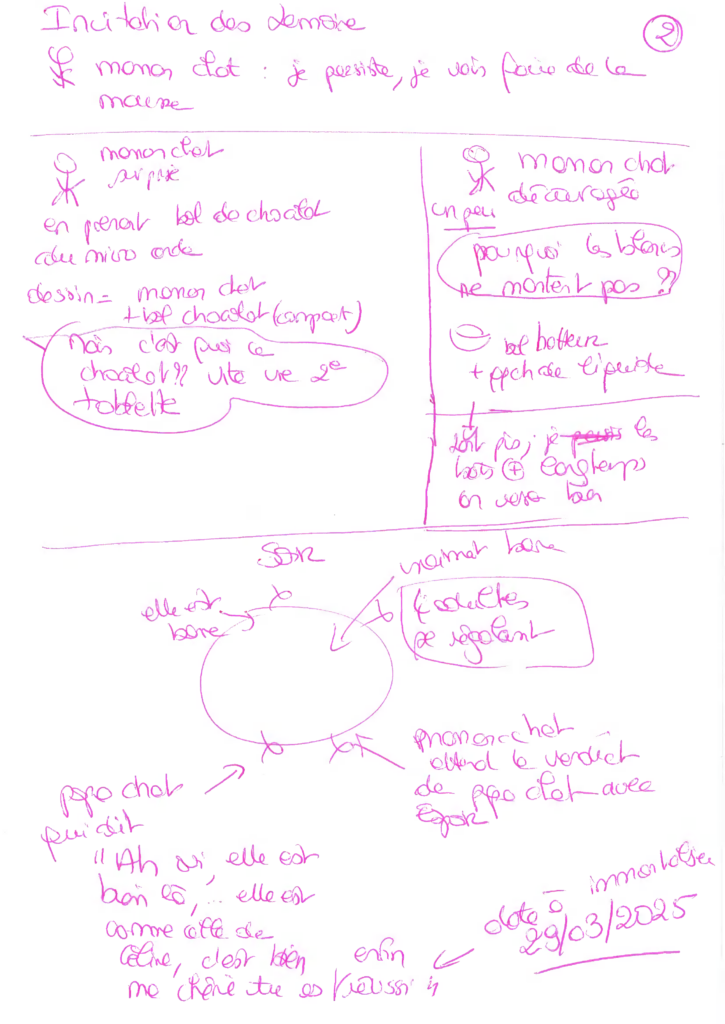 Incitation des demoire
2
maman chat : je persiste, je vais faire de la
mousse
maman chat
surprise
en prenant bol de chocolat
du micro onde
dessin = maman chat
+ bol chocolat (compact)
Mais c'est quoi ce
chocolat ?? vite une 2e
tablette
maman chat
découragée
un peu
pourquoi les blancs
ne montent pas ??
bol batteur
+ liquide
tant pis, je les
bats + longtemps
on verra bien
SOIR
vraiment bonne
elle est
bonne
4 adultes
se régalent
maman chat
attend le verdict
de papa chat avec
espoir
papa chat
qui dit
"Ah oui, elle est
bien là, ... elle est
comme celle de
Céline, c'est bien enfin
ma chérie tu as réussi "
date à immortaliser
29/03/2025